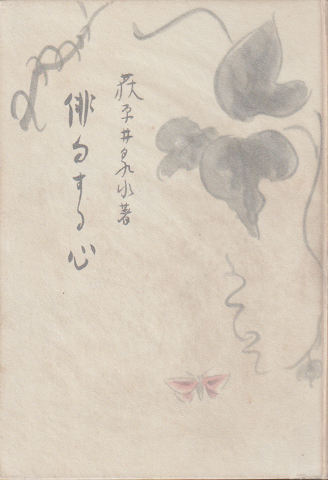 俳句する心
荻原井泉水著